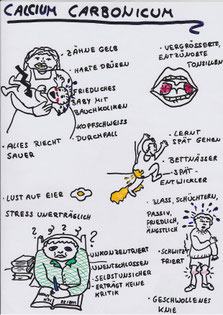 CALCIUM CARBONICUM
· ZÄHNE GELB
· HARTE DRÜSEN
· FRIEDLICHES
BABY MIT
BAUCHKOLIKEN
· KOPFSCHWEISS
· DURCHFALL
· ALLES RIECHT
SAUER
· VERGRÖSSERTE,
ENTZÜNDETE
TONSILLEN
· LERNT
SPÄT GEHEN
· BETTNÄSSER
· SPÄT-
ENTWICKLER
· LUST AUF EIER
STRESS UNERTRÄGLICH
UNKONZENTRIERT
UNENTSCHLOSSEN
SELBSTUNSICHER
ERTRÄGT KEINE
KRITIK
· BLASS, SCHÜCHTERN,
PASSIV,
FRIEDLICH,
ÄNGSTLICH
· SCHWITZT
FRIERT
· GESCHWOLLENES
KNIE